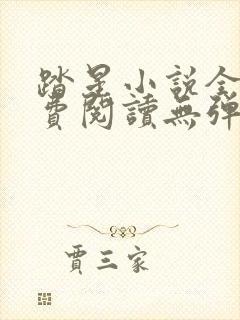 踏星小說全
費閱讀無彈
賈三家